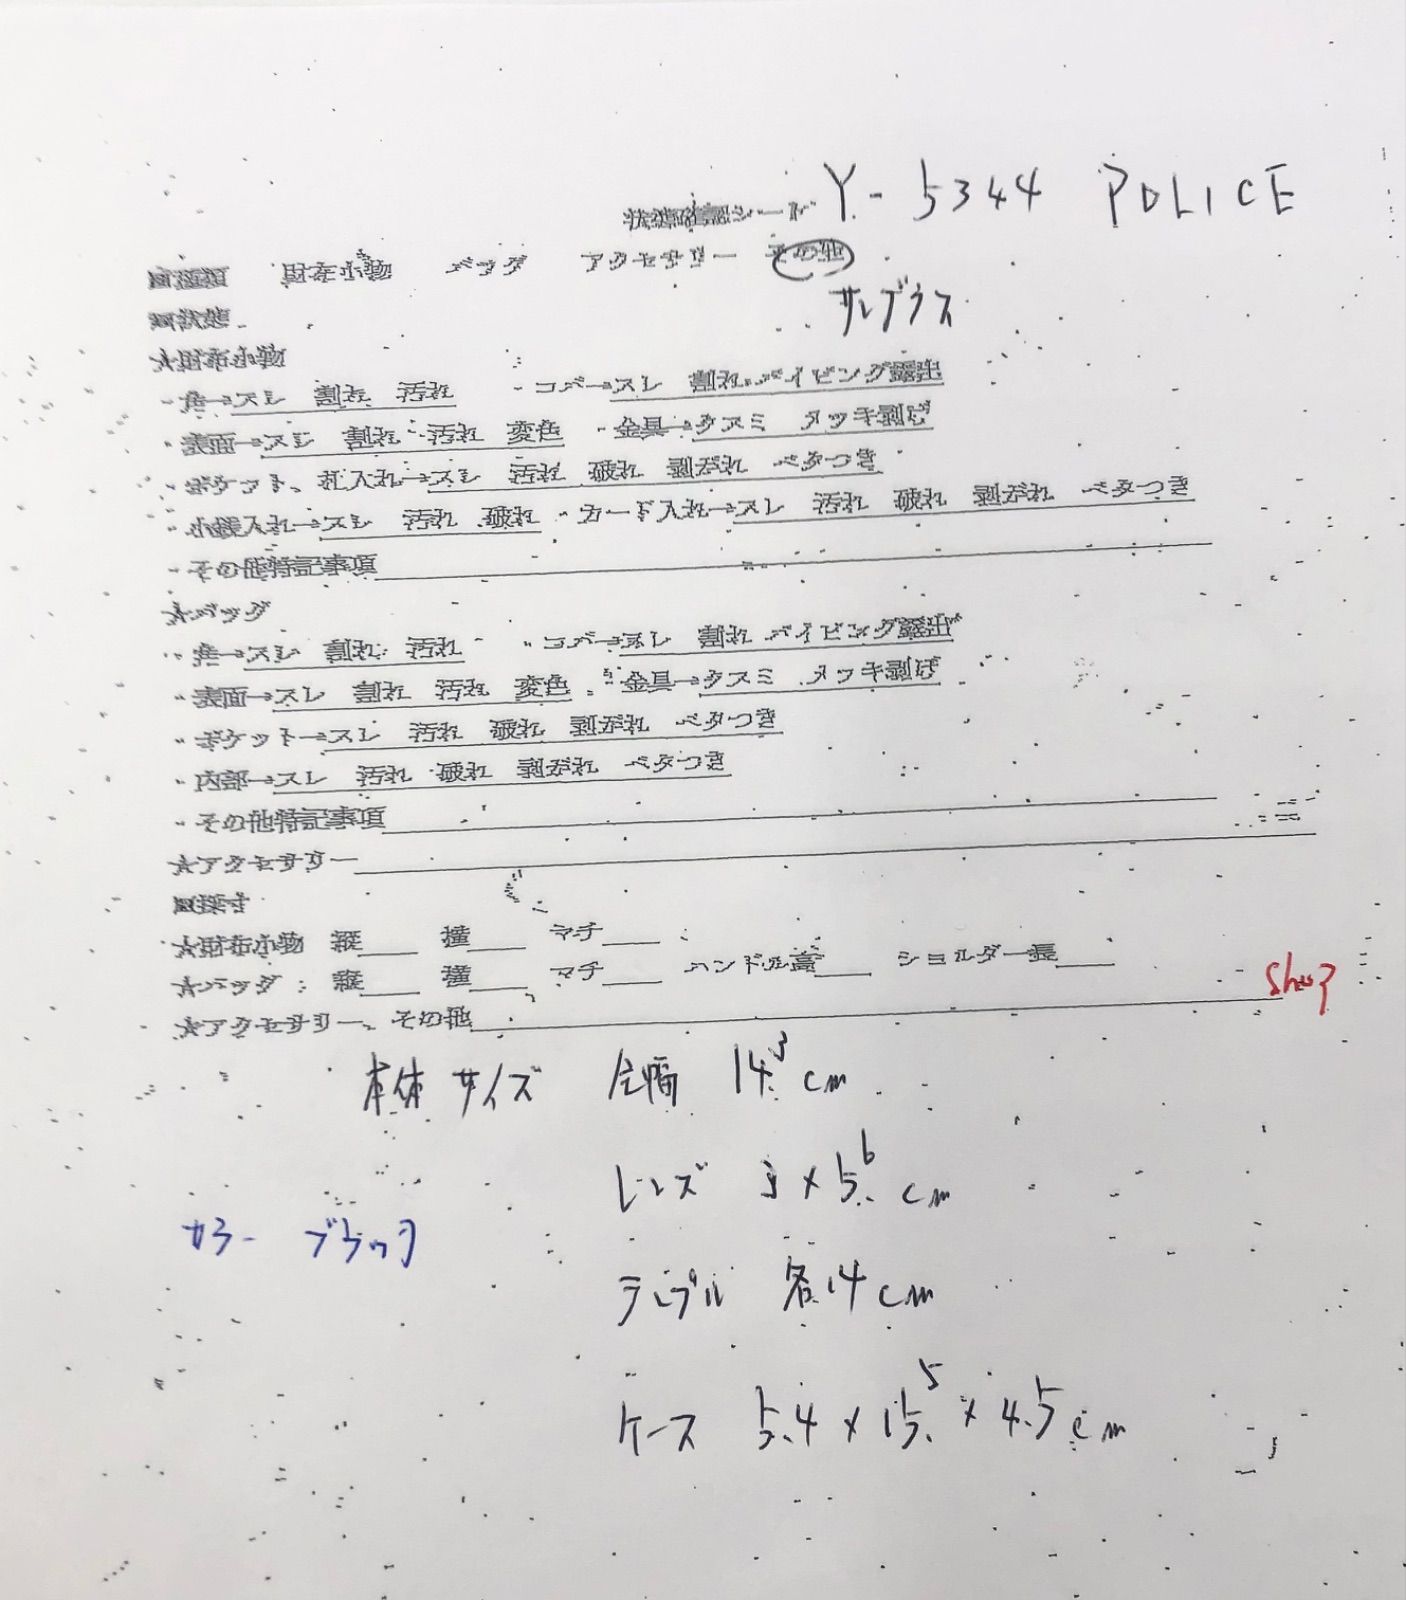 状態確認シート Y-5344 POLICE
■種類 財布小物 バッグ アクセサリー その他
サングラス
■状態
★財布小物
・角→スレ 割れ 汚れ ・コバ→スレ 割れ パイピング露出
・表面→スレ 割れ 汚れ 変色 ・金具→クスミ メッキ剥げ
・ポケット、札入れ→スレ 汚れ 破れ 剥がれ ベタつき
・小銭入れ→スレ 汚れ 破れ ・カード入れ→スレ 汚れ 破れ 剥がれ ベタつき
・その他特記事項
★バッグ
・角→スレ 割れ 汚れ ・コバ→スレ 割れ パイピング露出
・表面→スレ 割れ 汚れ 変色 ・金具→クスミ メッキ剥げ
・ポケット→スレ 汚れ 破れ 剥がれ ベタつき
・内部→スレ 汚れ 破れ 剥がれ ベタつき
・その他特記事項
★アクセサリー
■採寸
★財布小物 縦 横 マチ
★バッグ:縦 横 マチ ハンドル高 ショルダー長
★アクセサリー、その他
本体サイズ 全幅 14.3 cm
レンズ 3×5.6 cm
カラー ブラック
テンプル 各14cm
ケース 5.4×15.5×4.5cm